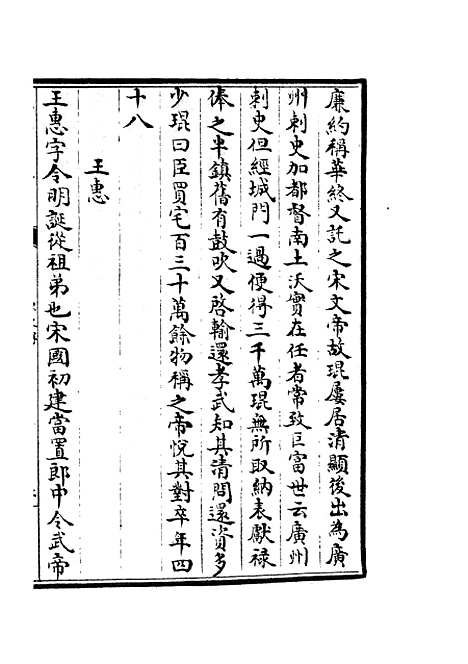 廉約稱華終又託之宋文帝故琨屢居清顯後出為廣
州刺史加都督南土沃實在任者常致巨富世云廣州
刺史但經城門一過便得三千萬琨無所取納表獻祿
俸之半鎮舊有鼓吹又啓輸還孝武知其清問還資多
少琨曰臣買宅百三十萬餘物稱之帝悅其對卒年四
十八
王惠
王惠字令明誕從祖弟也宋國初建當置郎中令武帝